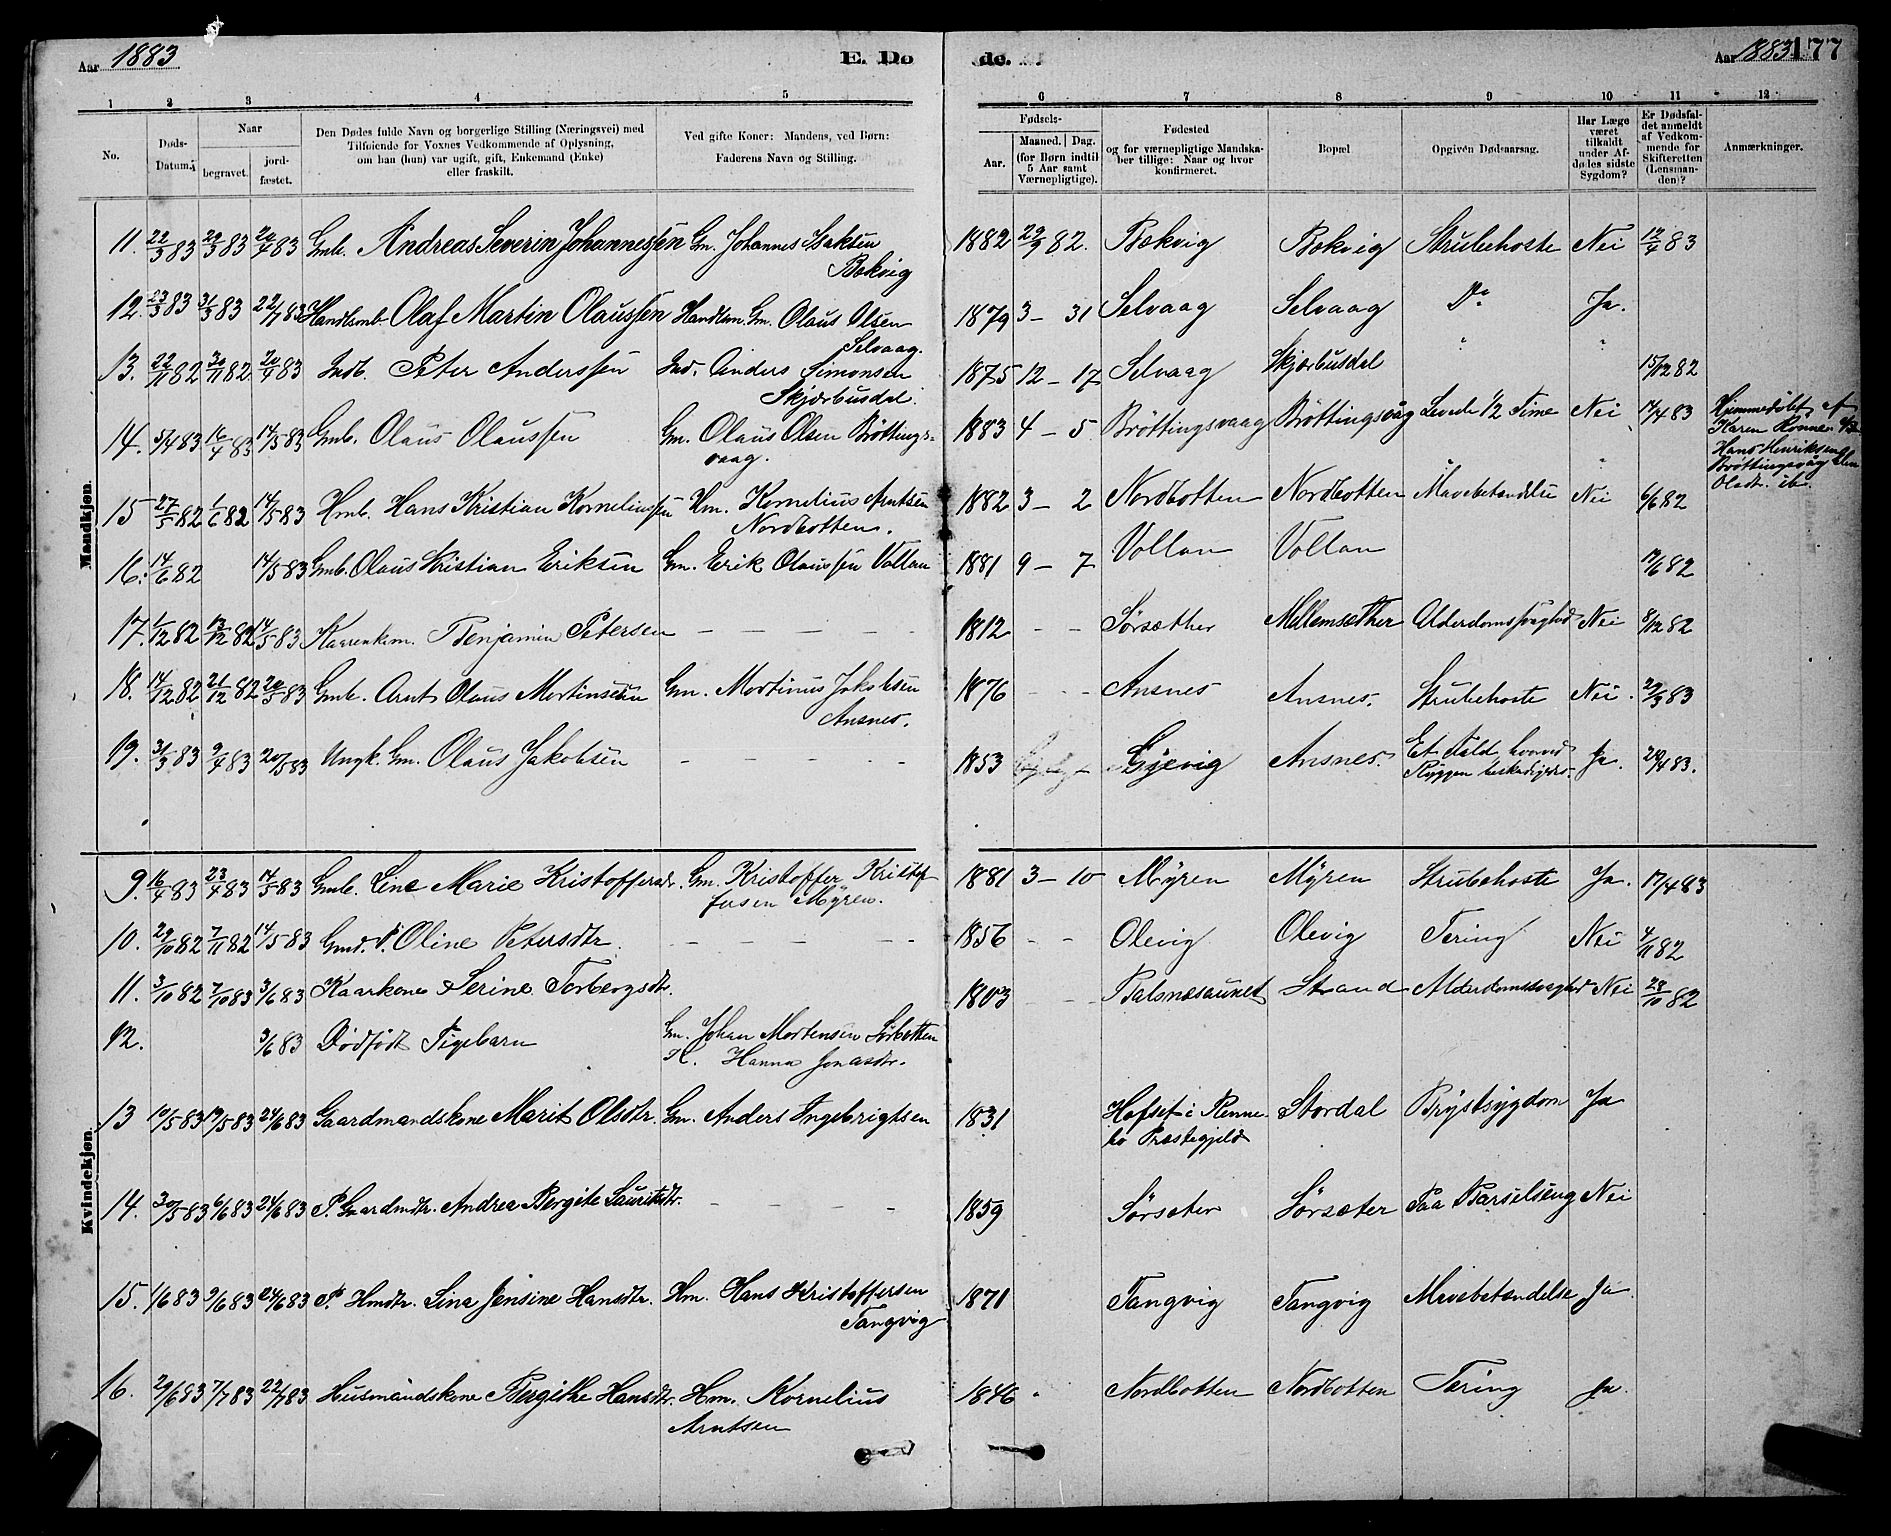 Aar 1883 E. Dø de. Aar 1883 177
1 2 3 4 5 6 7 8 9 10 11 12
No. Døds-Datum. Naar begravet. jordfæstet. Den Dødes fulde Navn og borgerlige Stilling (Næringsvei) med Tilføiende for Voxnes Vedkommende af Oplysning, om han (hun) var ugift, gift, Enkemand (Enke) eller fraskilt. Ved gifte Koner: Mandens, ved Børn: Faderens Navn og Stilling. Fødsels- Aar. Maaned. Dag. (for Børn indtil 5 Aar samt Værnepligtige). Fødested og for værnepligtige Mandskaber tillige: Naar og hvor konfirmeret. Bopæl. Opgiven Dødsaarsag. Har Læge været tilkaldt under Afdødes sidste Sygdom? Er Dødsfaldet anmeldt af Vedkommende for Skifteretten (Lensmanden)? Anmærkninger.
Mandkjøn.
11. 22/3 83 29/3 83 20/4 83 Gmb. Andreas Severin Johannessen Gm. Johannes Isaksen Bekvig 1882 29/9 82. Bekvig Bekvig Strubehoste Nei 12/4 83
12. 23/3 83 31/3 83 22/7 83 Handlsmb. Olaf Martin Olaussen Handlsm. Gm. Olaus Olsen Selvaag. 1879 3 - 31 Selvaag Selvaag Do Ja.
13. 22/11 82 30/11 82 20/4 83 Indb. Peter Anderssen Ind. Anders Simonsen Skjærbusdal. 1875 12 - 17 Selvaag Skjærbusdal " " 15/12 82
14. 5/4 83 16/4 83 14/5 83 Gmb. Olaus Olaussen Gm. Olaus Olsen Brøttingsvaag. 1883 4 - 5 Brøttingsvaag Brøttingsvåg Levede 1/2 Time Nei 17/4 83 Hjemmedøbt af Karen Hans Henriksen Brøttingsvåg Oladr. ibi.
15 27/5 82 1/6 82 14/5 83 Hmb. Hans Kristian Kornelinssen Hm. Kornelius Arntsen Nordbotten. 1882 3 - 2 Nordbotten Nordbotten Mavebetændlse Nei 6/6 82
16. 14/6 82 14/5 83 Gmb. Olaus Kristian Eriksen Gm. Erik Olaussen Vollan 1881 9 - 7 Vollan Vollan 17/6 82
17. 1/12 82 13/12 82 14/5 83 Kaarenkem. Benjamin Petersen - - - - - 1812 - - Sørsæther Mellemsæther Alderdomssvaghed Nei 8/12 82
18. 14/12 82 21/12 82 20/5 83 Gmb. Arnt Olaus Mortinsen Gm. Mortinus Jakobsen Ansnes. 1876 - Ansnes Ansnes. Strubehoste Nei. 29/3 83
19. 31/3 83 9/4 83 20/5 83 Ungk. Gm. Olaus Jakobsen - - - - - 1853 Gjevig Ansnes. Et Fald hvorved Ryggen beskadigedes. Ja. 20/4 83.
Kvindekjøn.
9. 16/4 83 23/4 83 14/5 83 Gmb. Line Marie Kristoffersdr. Gm. Kristoffer Kristoffersen Myren. 1881 3 - 10 Myren Myren Strubehoste Ja. 17/4 83
10. 29/10 82 7/11 82 14/5 83 Gmd. P. Oline Petersdtr. - - - - - 1856 - - Olevig Olevig Tering Nei 4/11 82
11. 3/10 82 7/10 83 3/6 83 Kaarkone Serine Torbergsdtr. 1803 - - Balsnesaunet Strand Alderdomssvaghed Nei 28/10 82
12. 3/6 83 Dødfødt Pigebarn Gm. Johan Mortensen Sørbotten K. Hanna Jonasdtr.
13 10/5 83 19/5 83 24/6 83 Gaardmandskone Marit Olsdtr. Gm. Anders Ingebrigtsen 1831 Hofset i Rennebo Præstegjeld Stordal Brystsygdom Ja
14. 30/5 83 6/6 83 24/6 83 P. Gaardmdtr. Andrea Bergite Lauritsdtr. - - - - 1859 Sørsæter Sørsæter Paa Barselseng Nei
15. 1/6 83 9/6 83 24/6 83 P. Hmdtr. Lina Jensine Hansdtr. Hm. Hans Kristoffersen Tangvig 1871 Tangvig Tangvig Mavebetændelse Ja
16. 29/6 83 7/7 83 22/7 83 Husmandskone Bergithe Hansdtr. Hm. Kornelius Arntsen 1846 Nordbotten Nordbotten Tæring Ja.